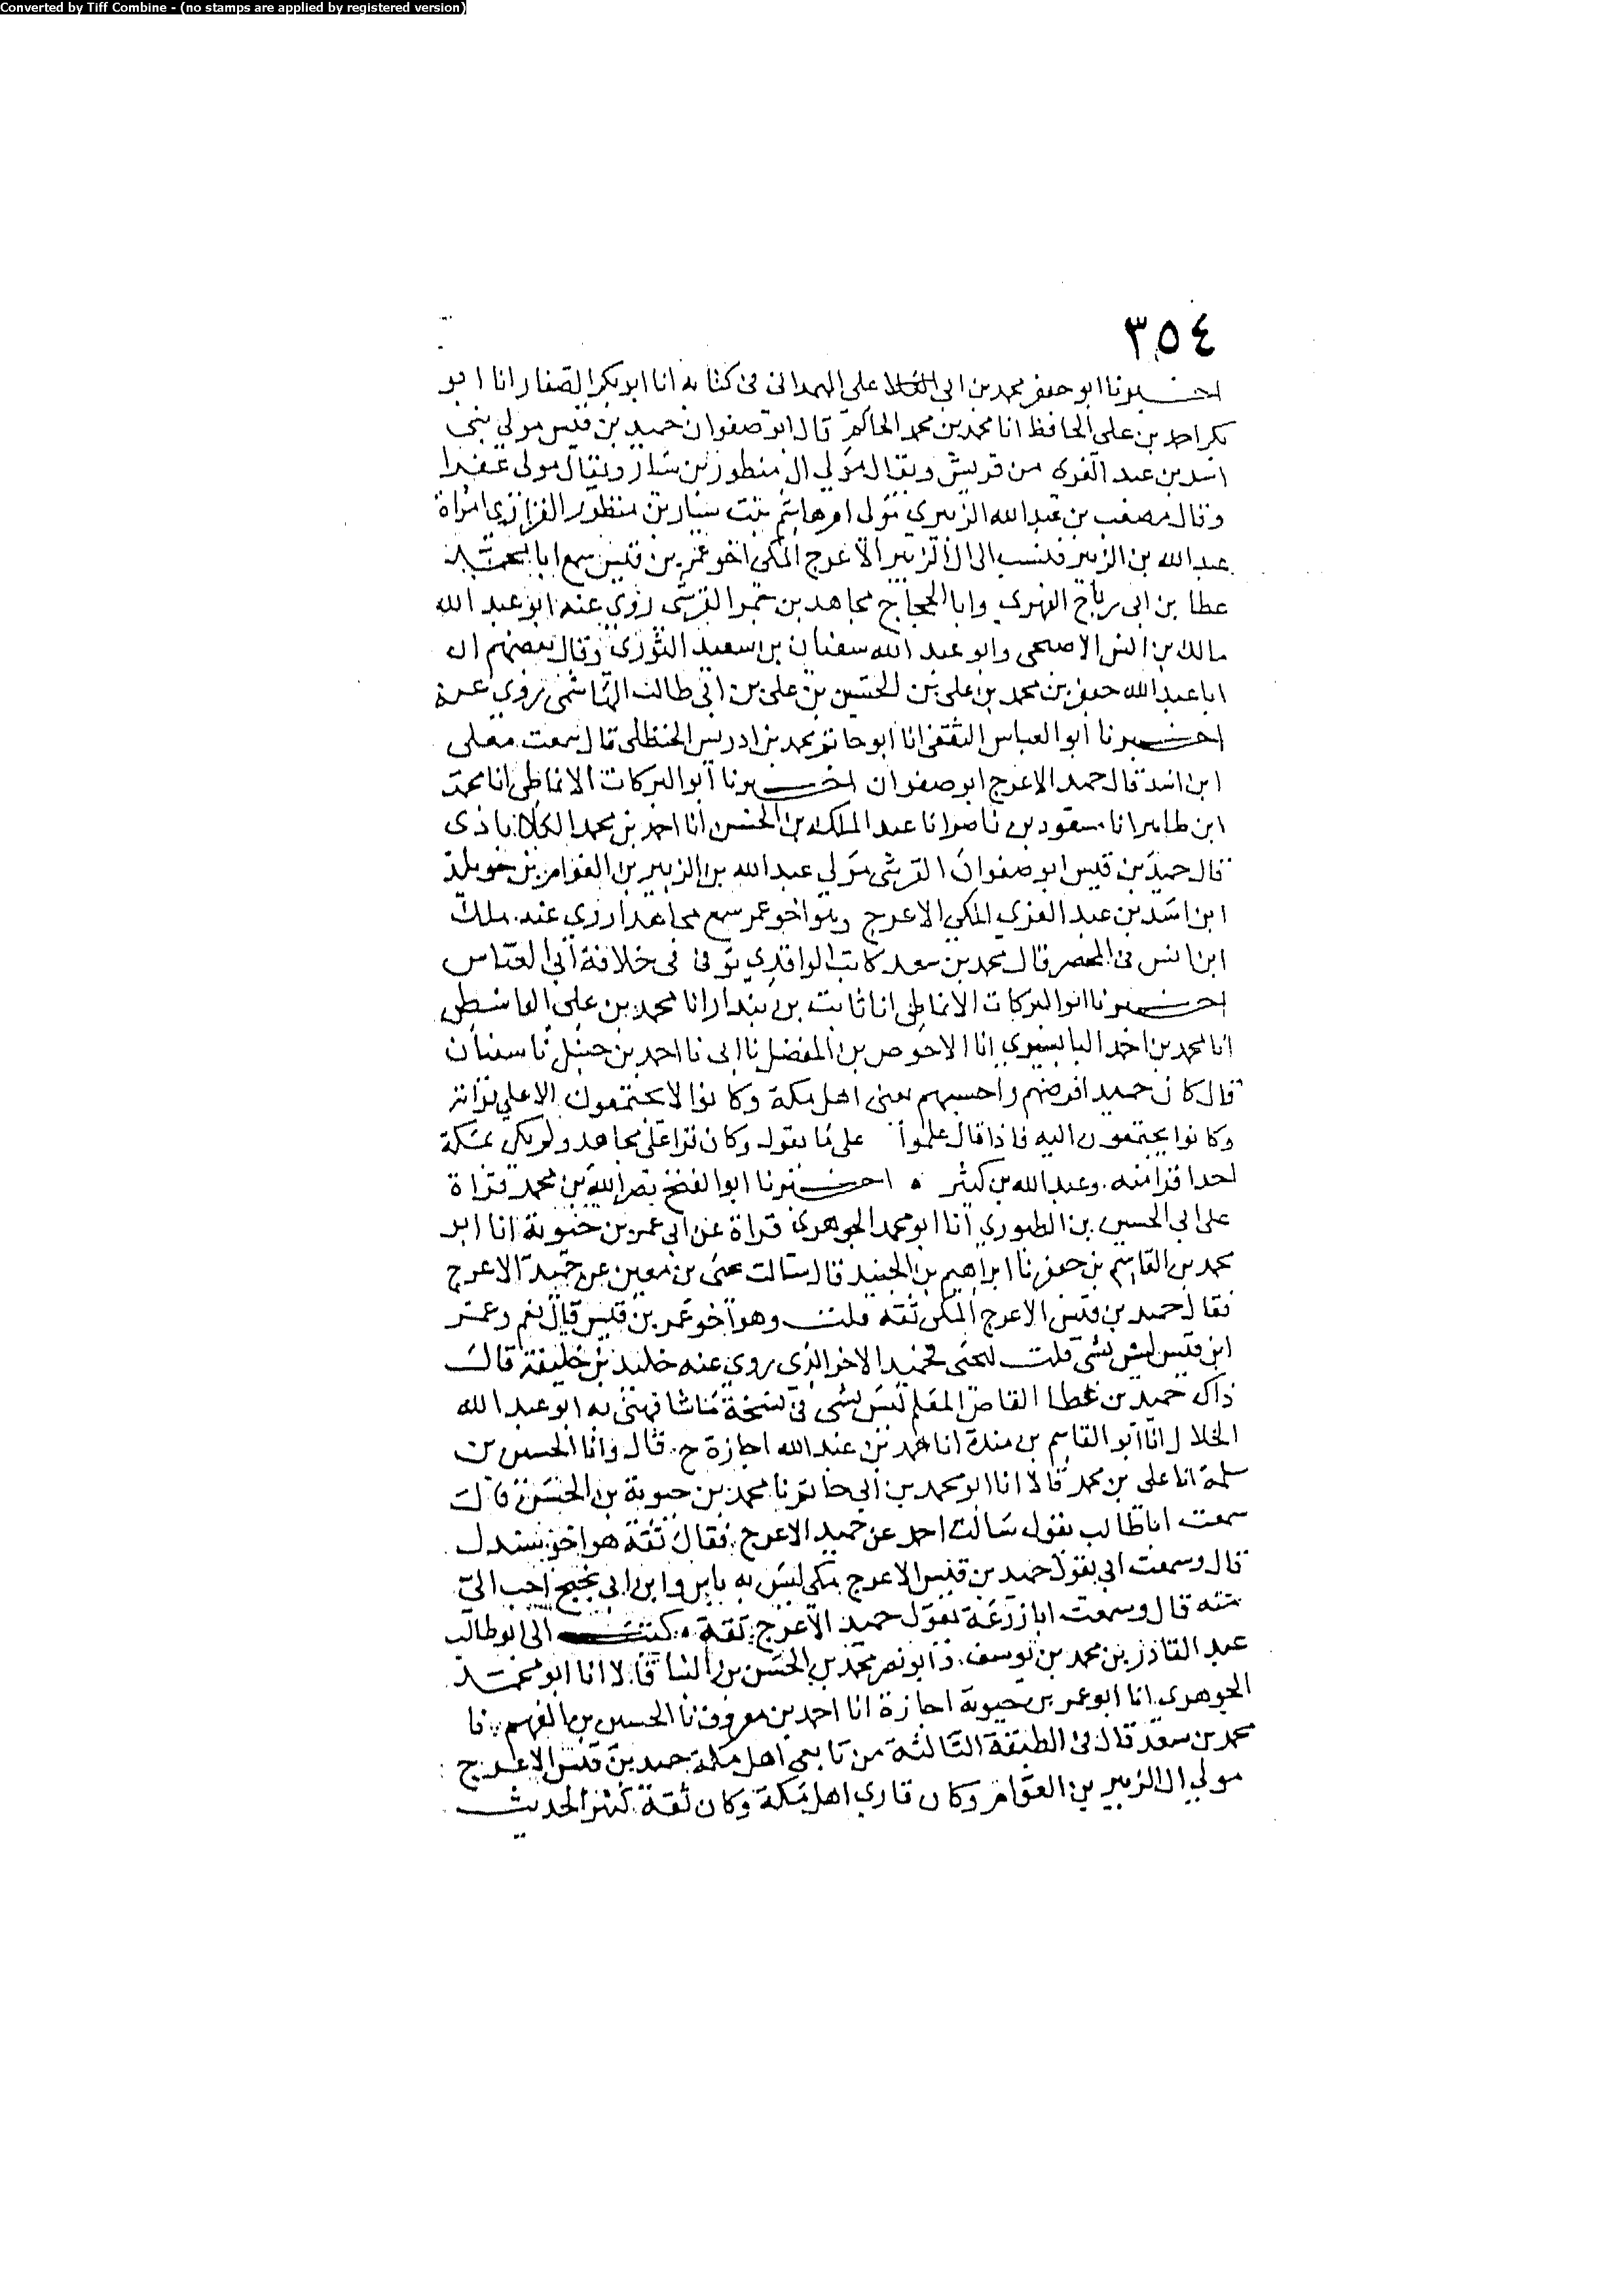 Converted by Tiff Combine - (no stamps are applied by registered version)
٣٥٤
اخبرنا ابو جعفر محمد بن ابي على الهمداني في كتابه انا ابو بكر الصفار انا ابو
بكر احمد بن علي الحافظ انا محمد بن محمد الحاكم قال ابو صفوان حميد بن قيس مولي بني
اسد بن عبد العزى من قريش ويقال مولي ال منظور بن سيار ويقال مولى عفرا
وقال مصعب بن عبد الله الزبيري مولى ام هاشم بنت سيار بن منظور الفزازي امراة
عبد الله بن الزبير فنسب الى ال الزبير الاعرج المكي اخو عمر بن قيس سمع ابا محمد
عطا بن ابي رباح الفهري وابا الحجاج مجاهد بن جبر القرشي روي عنه ابو عبد الله
مالك بن انس الاصبحي وابو عبد الله سفيان بن سعيد الثوري وقال بعضهم ان
ابا عبد الله جعفر بن محمد بن علي بن الحسين بن علي بن ابي طالب الهاشمي يروي عنه
اخبرنا ابو العباس الثقفي انا ابو حاتم محمد بن ادريس الحنظلي قال سمعت معلى
ابن اسد قال حميد الاعرج ابو صفوان اخبرنا ابو البركات الانماطي انا محمد
ابن طاهر انا مسعود بن ناصر انا عبد الملك بن الحسن انا احمد بن محمد الكلاباذي
قال حميد بن قيس ابو صفوان القرشي مولي عبد الله بن الزبير بن العوام بن خويلد
ابن اسد بن عبد العزي المكي الاعرج وهو اخو عمر سمع مجاهدا روي عنه ملك
ابن انس في المحصر قال محمد بن سعد كاتب الواقدي توفي في خلافة ابي العباس
اخبرنا ابو البركات الانماطي انا ثابت بن بندار انا محمد بن علي الواسطي
انا محمد بن احمد البابسيري انا الاحوص بن المفضل نا ابي نا احمد بن حنبل نا سفيان
قال كان حميد افرضهم واحسبهم يعني اهل مكة وكانوا لا يجتمعون الا على قراته
وكانوا يجتمعون اليه فاذا قال علموا على ما يقول وكان قرا على مجاهد ولم يكن بمكة
احدا قرا منه وعبد الله بن كثير • اخبرنا ابو الفتح نصر الله بن محمد قراة
على ابي الحسين بن الطيوري انا ابو محمد الجوهري قراة عن ابي عمر بن حيوية انا ابو
محمد بن القاسم بن جعفر نا ابراهيم بن الجنيد قال سالت يحيى بن معين عن حميد الاعرج
فقال حميد بن قيس الاعرج المكي ثقه قلت وهو اخو عمر بن قيس قال نعم وعمر
ابن قيس ليس بشي قلت ليحيى فحميد الاخر الذي روي عنه خلف بن خليفة قال
ذاك حميد بن عطا القاص المعلم ليس بشي في نسخة ما شافهني به ابو عبد الله
الخلال انا ابو القاسم بن مندة انا حمد بن عبد الله اجازة ح قال وانا الحسين بن
سلمة انا علي بن محمد قالا انا ابو محمد بن ابي حاتم نا محمد بن حموية بن الحسن قال
سمعت ابا طالب يقول سالت احمد عن حميد الاعرج فقال ثقة هو اخو سندل
قال وسمعت ابي يقول حميد بن قيس الاعرج مكي ليس به باس وابن ابي نجيح احب الي
منه قال وسمعت ابا زرعة يقول حميد الاعرج ثقة • كتب الى ابو طالب
عبد القادر بن محمد بن يوسف وابو نصر محمد بن الحسن بن البنا قالا انا ابو محمد
الجوهري انا ابو عمر بن حيوية اجازة انا احمد بن معروف نا الحسين بن الفهم نا
محمد بن سعد قال في الطبقة الثالثة من تابعي اهل مكة حميد بن قيس الاعرج
مولي ال الزبير بن العوام وكان قاري اهل مكة وكان ثقة كثير الحديث